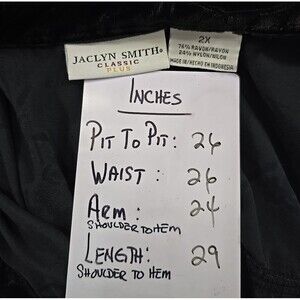 JACLYN SMITH®
CLASSIC
PLUS
2X
76% RAYON/RAYON
24% NYLON/NILON
MADE IN/HECHO EN INDONESIA
INCHES
PIT TO PIT: 26
WAIST: 26
ARM: 24
SHOULDER TO HEM
LENGTH: 29
SHOULDER TO HEM